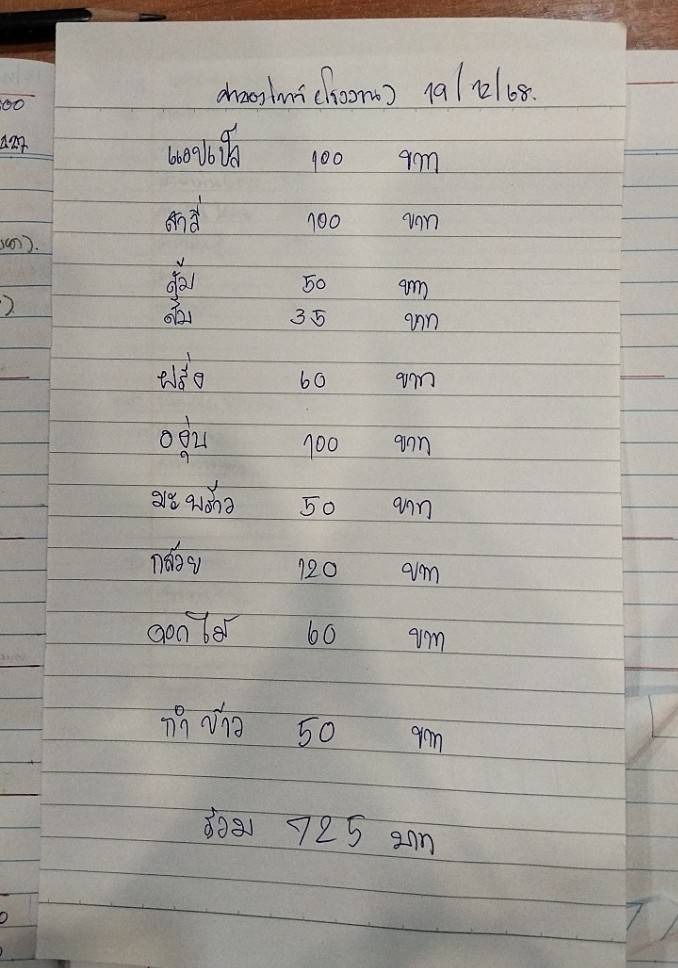 ศาลเจ้าที่ (โรงงาน) 19/12/68.
แอปเปิ้ล 100 บาท
สาลี่ 100 บาท
ส้ม 50 บาท
ส้ม 35 บาท
ฝรั่ง 60 บาท
องุ่น 100 บาท
มะพร้าว 50 บาท
กล้วย 120 บาท
ดอกไม้ 60 บาท
กำข้าว 50 บาท
รวม 725 บาท